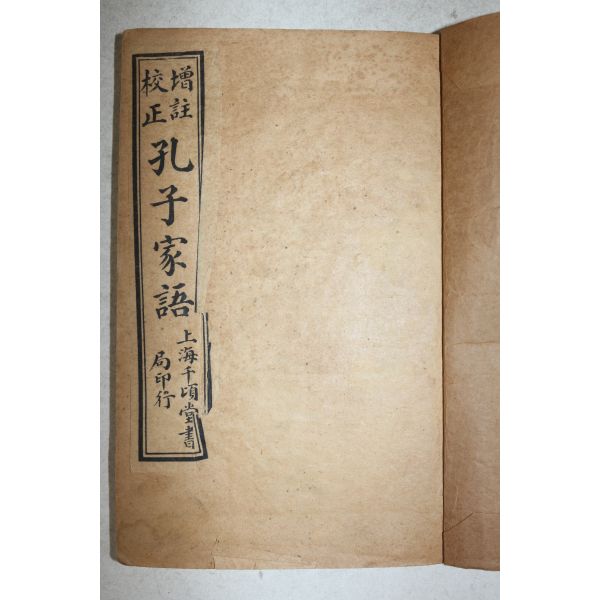 增註
校正
孔子家語
上海千頃堂書
局印行